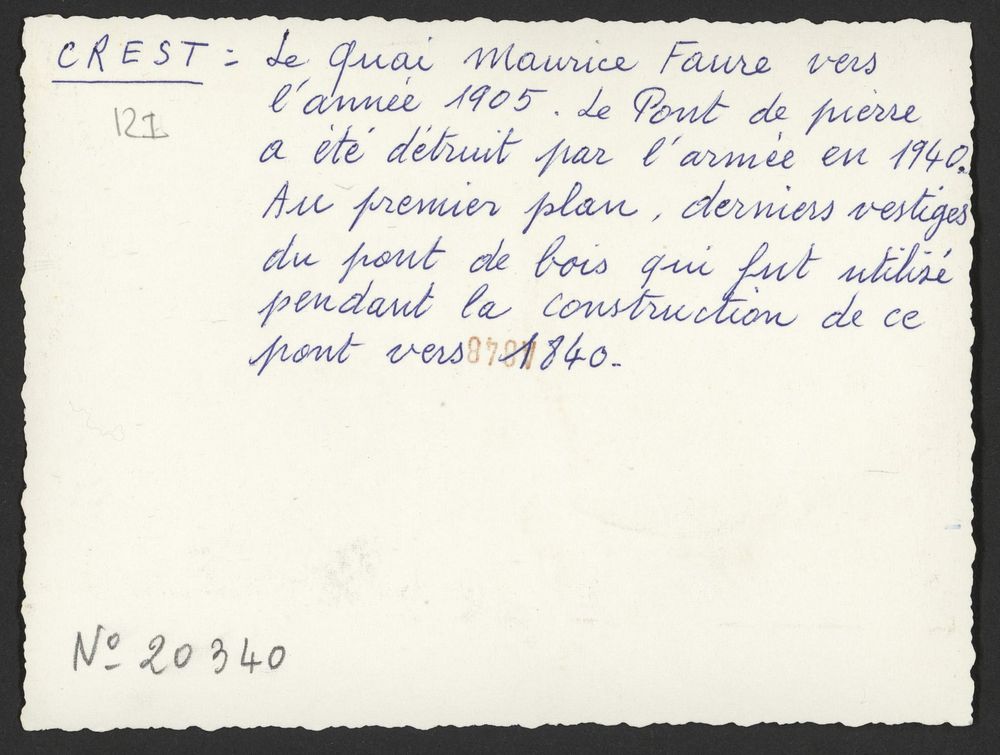 CREST : Le Quai Maurice Faure vers
l'année 1905. Le Pont de pierre
a été détruit par l'armée en 1940.
Au premier plan, derniers vestiges
du pont de bois qui fut utilisé
pendant la construction de ce
pont vers 1840.
12I
N° 20340